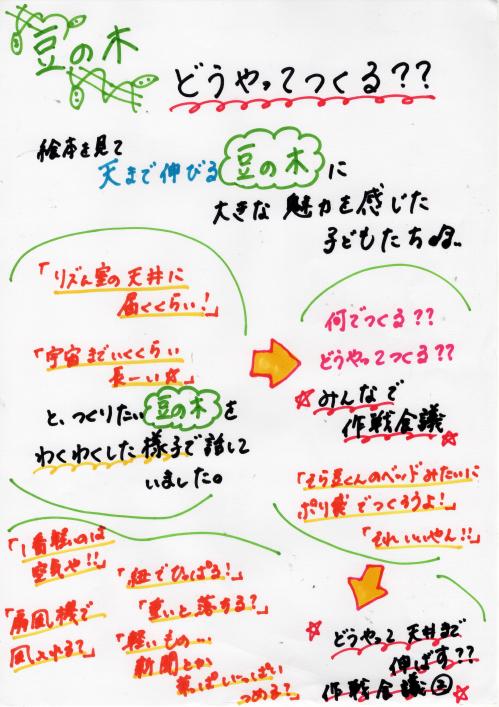 豆の木
どうやってつくる??
絵本を見て
天まで伸びる豆の木に
大きな魅力を感じた
子どもたち♪..
「リズム室の天井に
届くくらい!」
「宇宙までいくくらい
長ーい☆」
と、つくりたい豆の木を
わくわくした様子で話して
いました。
何でつくる??
どうやってつくる??
☆みんなで
作戦会議☆
「そら豆くんのベッドみたいに
ポリ袋でつくろうよ!」
「それいいやん!!」
☆どうやって天井まで
伸ばす??
作戦会議②
「1番軽いのは
空気や!!」
「扇風機で
風入れる?」
「紐でひっぱる!」
「重いと落ちる?」
「軽いもの…
新聞とか
葉っぱいっぱい
つめる?」